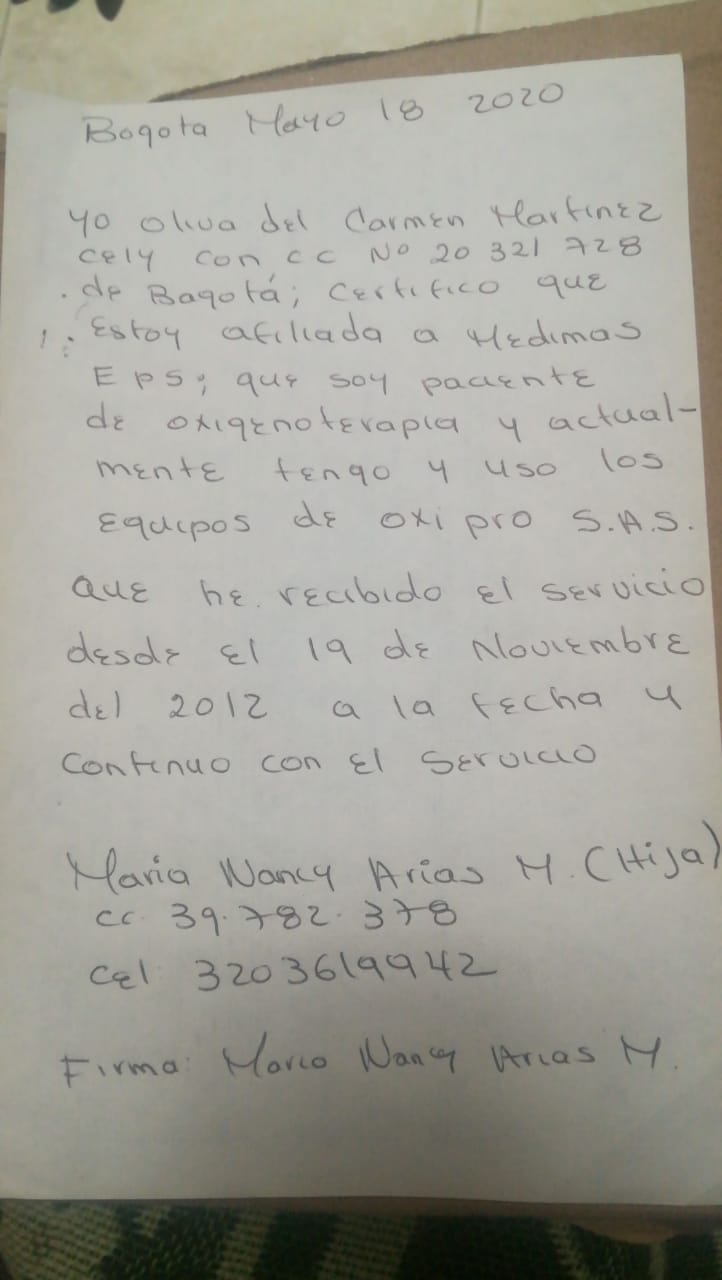 Bogota Mayo 18 2020
Yo Oliva del Carmen Martinez
Cely con cc No 20 321 728
de Bogotá; Certifico que
Estoy afiliada a Medimas
EPS; que soy paciente
de oxigenoterapia y actual-
mente tengo y uso los
Equipos de oxi pro S.A.S.
que he recibido el servicio
desde el 19 de Noviembre
del 2012 a la fecha y
Continuo con el Servicio
Maria Nancy Arias M. (Hija)
cc. 39.782.378
Cel 3203619942
Firma: Maria Nancy Arias M.